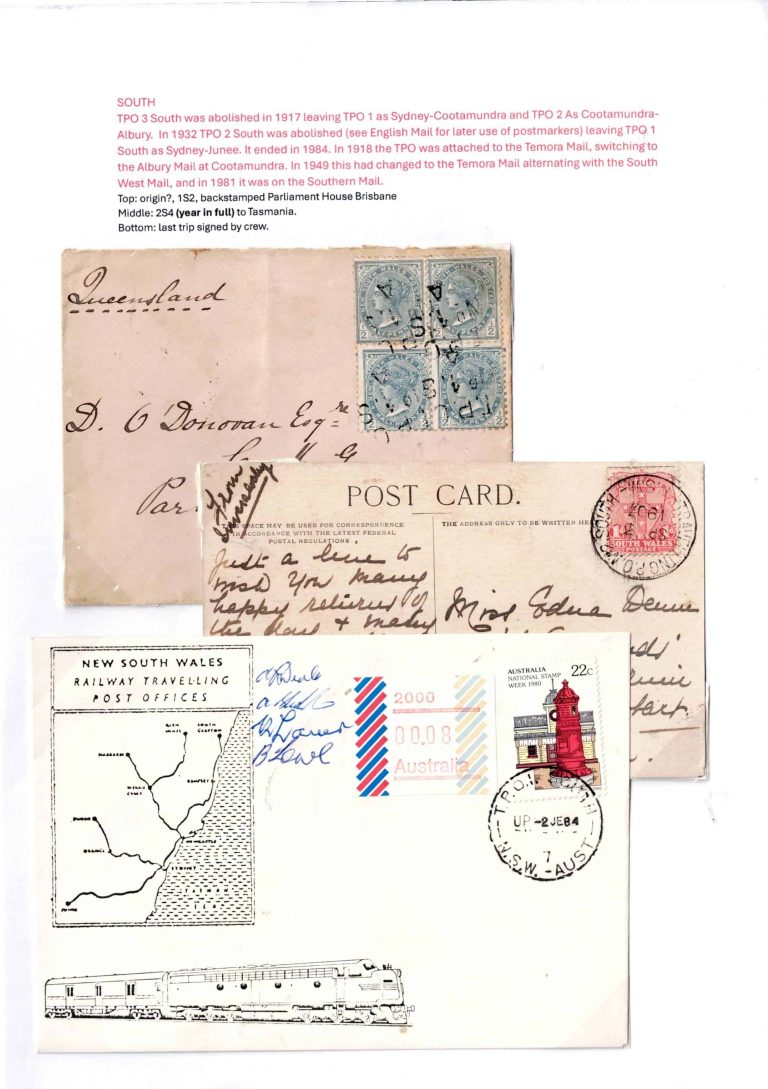 SOUTH
TPO 3 South was abolished in 1917 leaving TPO 1 as Sydney-Cootamundra and TPO 2 As Cootamundra-
Albury. In 1932 TPO 2 South was abolished (see English Mail for later use of postmarkers) leaving TPO 1
South as Sydney-Junee. It ended in 1984. In 1918 the TPO was attached to the Temora Mail, switching to
the Albury Mail at Cootamundra. In 1949 this had changed to the Temora Mail alternating with the South
West Mail, and in 1981 it was on the Southern Mail.
Top: origin?, 1S2, backstamped Parliament House Brisbane
Middle: 2S4 (year in full) to Tasmania.
Bottom: last trip signed by crew.
Queensland
D. O'Donovan Esqre
Par
From
POST CARD.
SPACE MAY BE USED FOR CORRESPONDENCE
IN ACCORDANCE WITH THE LATEST FEDERAL
POSTAL REGULATIONS
THE ADDRESS ONLY TO BE WRITTEN HE
SOUTH WALES
POSTAGE
1907
Just a line to
wish you many
happy returns of
the day & many
Miss Edna
NEW SOUTH WALES
RAILWAY TRAVELLING
POST OFFICES
GLEN
INNES
SOUTH
GRAFTON
KEMPSEY
WERRIS
CREEK
DUBBO
ORANGE
NEWCASTLE
SYDNEY
TASMAN
SEA
JUNEE
2000
00.08
Australia
AUSTRALIA
NATIONAL STAMP
WEEK 1980
22c
T.P.O.1 SOUTH
UP -2 JE84
7
N.S.W. - AUST